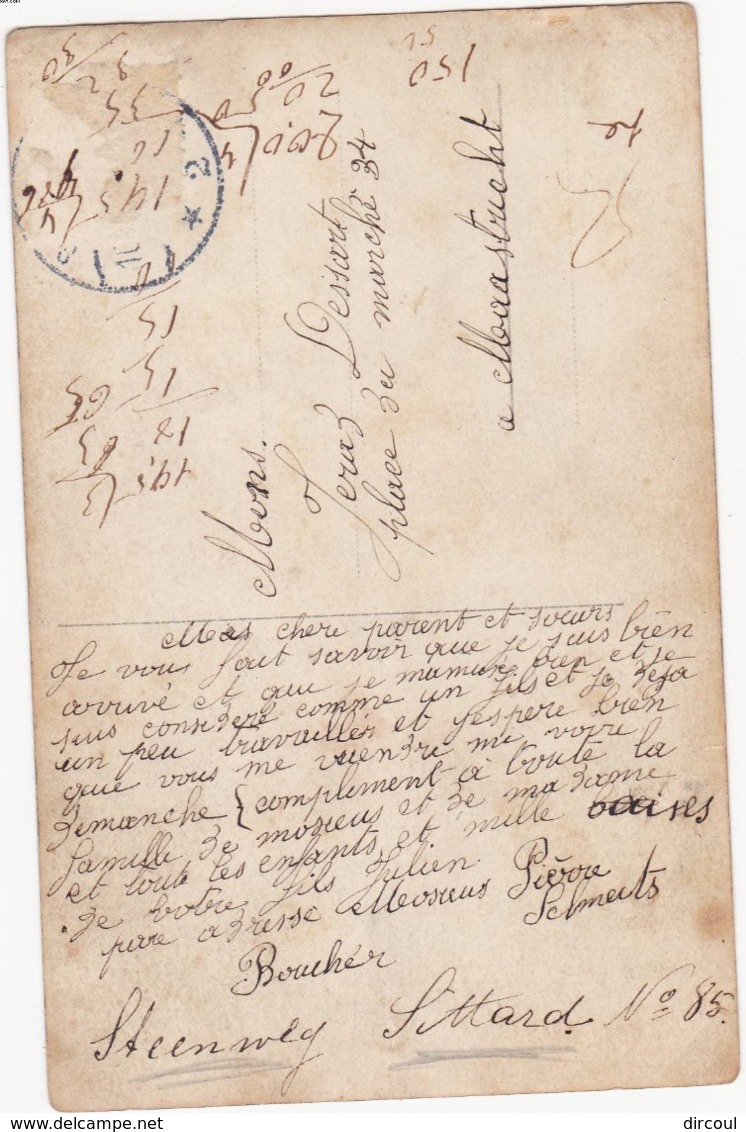 Mons.
Jerad Dessart
place du marché 34
a Maastricht
Mes chere parent et sœurs
Je vous fait savoir que je suis bien
arrivé et que je mamuse bien et je
suis consideré comme un fils et je deja
un peu travailler et jespere bien
que vous me viendre me voire
demanche { complement à toute la
famille de mosieus et de madame
et toute les enfants et mille baises
de votre fils Julien
pare adresse Mosieus Pièrre
Selmeits
Bouchér
Steenweg Sittard No 85.
150
2
dircoul | www.delcampe.net